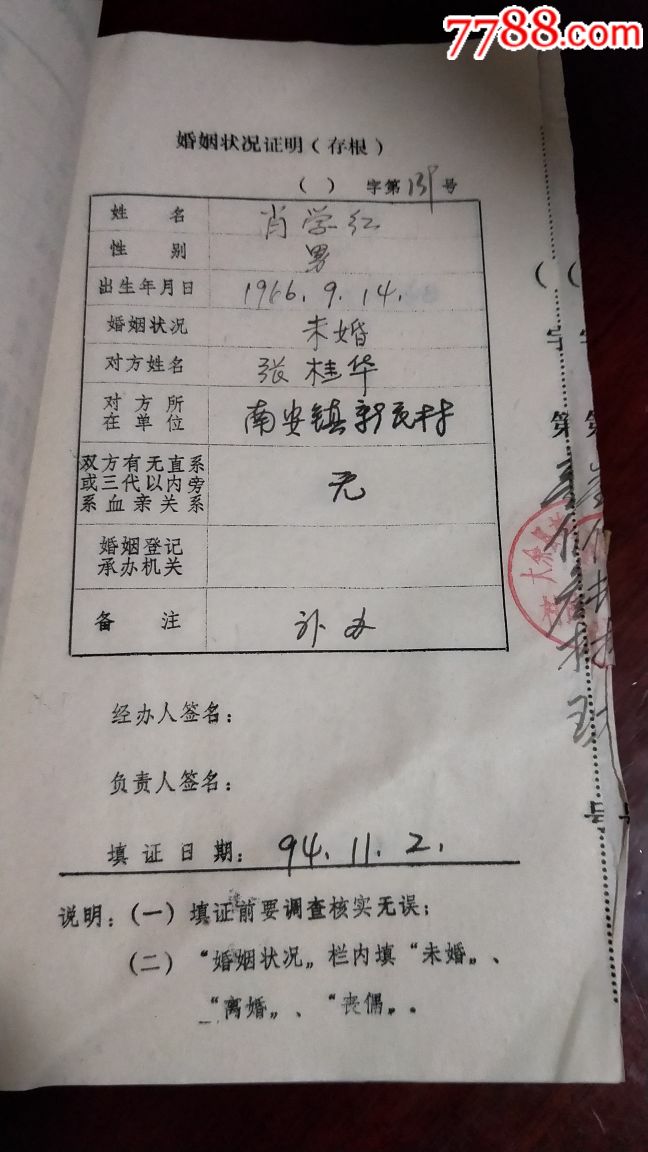 7788.com
婚姻状况证明(存根)
( ) 字第 号
姓 名 肖学红
性 别 男
出生年月日 1966.9.14.
婚姻状况 未婚
对方姓名 张桂华
对方所在单位 南安镇新民村
双方有无直系
或三代以内旁
系血亲关系 无
婚姻登记
承办机关
备 注 补办
经办人签名:
负责人签名:
填证日期: 94.11.2.
说明:(一)填证前要调查核实无误;
(二)“婚姻状况”栏内填“未婚”、
“离婚”、“丧偶”.
( (
字
第 第
大余县
号